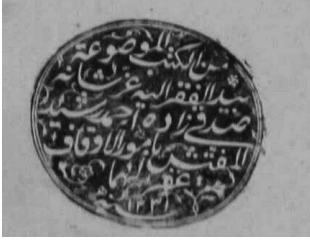 من الكتب الموضوعة
بيد الفقير اليه عز شانه
صدقي زاده احمد رشيد
المفتش بامور الاوقاف
غفر لهما
سنة